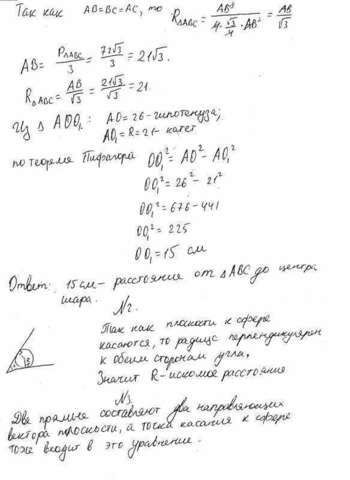 Так как AB=BC=AC, то R△ABC = AB³ / (4·√3/4·AB²) = AB/√3
AB = P△ABC/3 = 72√3/3 = 21√3.
R△ABC = AB/√3 = 21√3/√3 = 21.
Из △ AOO₁: AO=26-гипотенуза;
AO₁=R=21- катет
по теореме Пифагора OO₁² = AO² - AO₁²
OO₁² = 26² - 21²
OO₁² = 676-441
OO₁² = 225
OO₁ = 15 см
Ответ: 15см- расстояние от △ABC до центра
шара.
N2.
Так как плоскости к сфере
касаются, то радиус перпендикулярен
к обеим сторонам угла.
Значит R-искомое расстояния
N3
Две прямые составляют два направляющих
вектора плоскости, а точка касания к сфере
тоже входит в это уравнение.